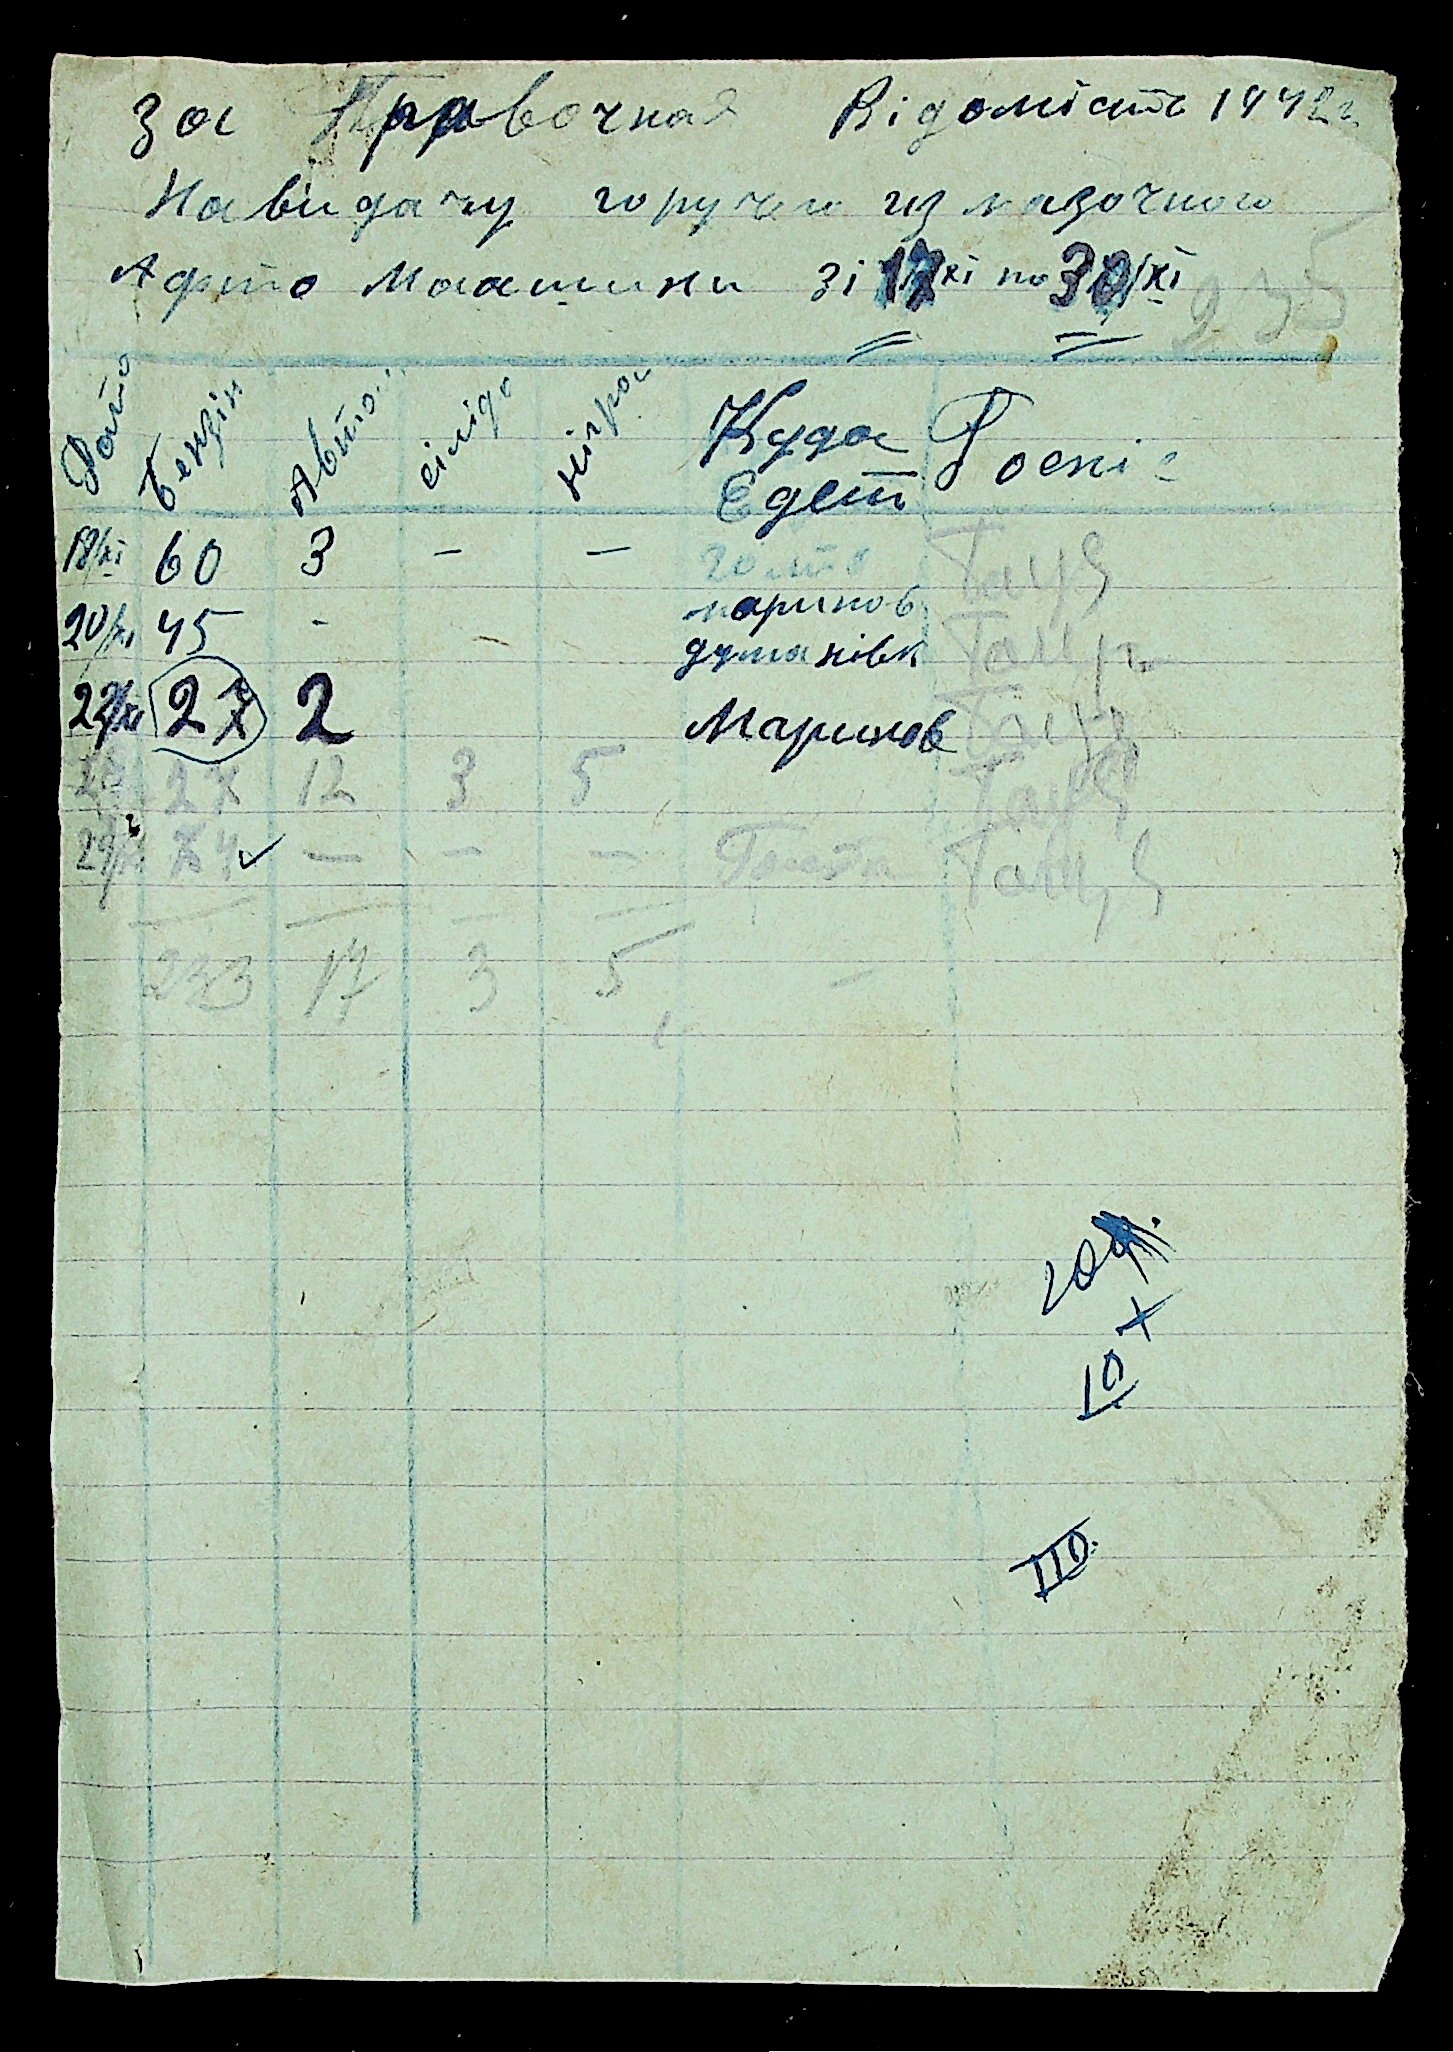 За Правочная Відомість 1942г
На видачу горучего из мазочного
Афто Маашини зі 17/хі по 30/хі
235
Дато Бензін Автол сілідо нігрол Куда Едет Роспіс
18/хі 60 3 — — голта
20/хі 45 - - маринов думанівк
22/хі 27 2 Маринов
27 12 3 5
29/хі 74 — — — Голта
233 17 3 5 —
10
110.